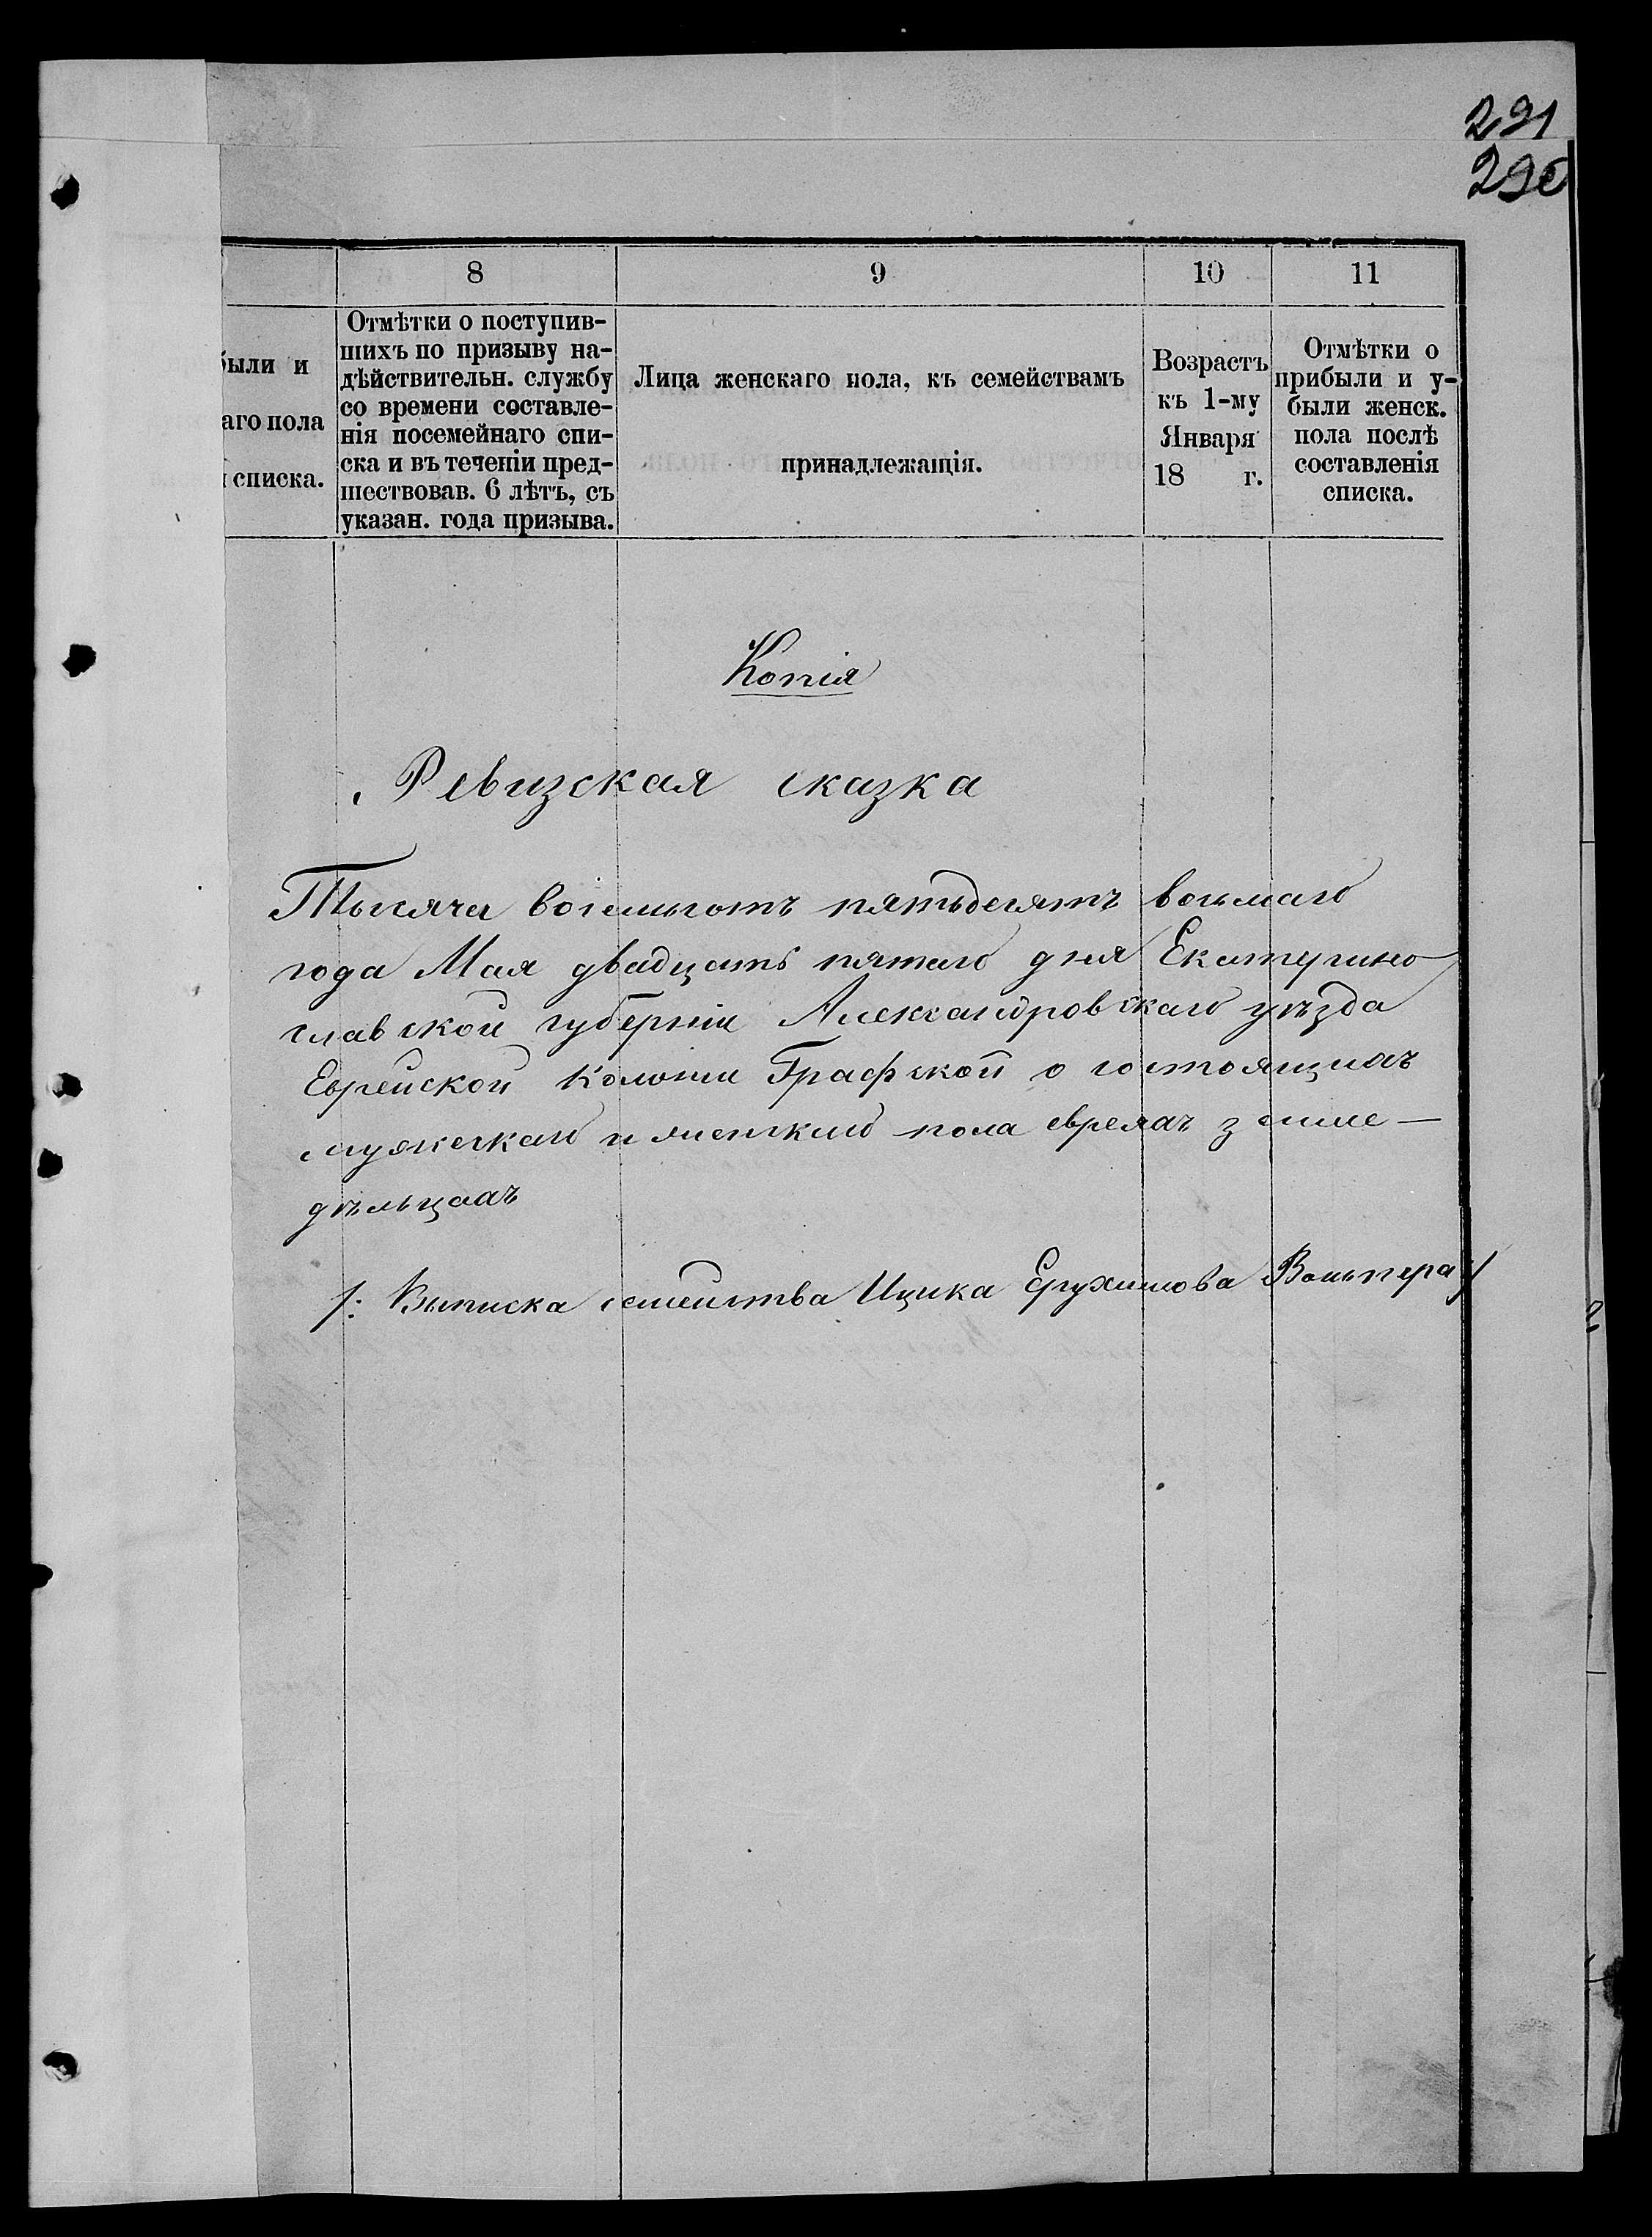 291
290
8
9
10
11
были и
аго пола
списка.
Отмѣтки о поступив-
шихъ по призыву на-
дѣйствительн. службу
со времени составле-
нія посемейнаго спи-
ска и въ теченіи пред-
шествовав. 6 лѣтъ, съ
указан. года призыва.
Лица женскаго пола, къ семействамъ
принадлежащія.
Возрастъ
къ 1-му
Января
18 г.
Отмѣтки о
прибыли и у-
были женск.
пола послѣ
составленія
списка.
Копія
Ревизская сказка
Тысяча восемьсотъ пятьдесятъ восьмаго
года Мая двадцать пятаго дня Екатерино
славской губерніи Александровскаго уѣзда
Еврейской Колоніи Графской о состоящихъ
мужескаго и женскаго пола евреяхъ земле-
дѣльцахъ
/: Выписка семейства Ицика Ерухимова Вольпера :/